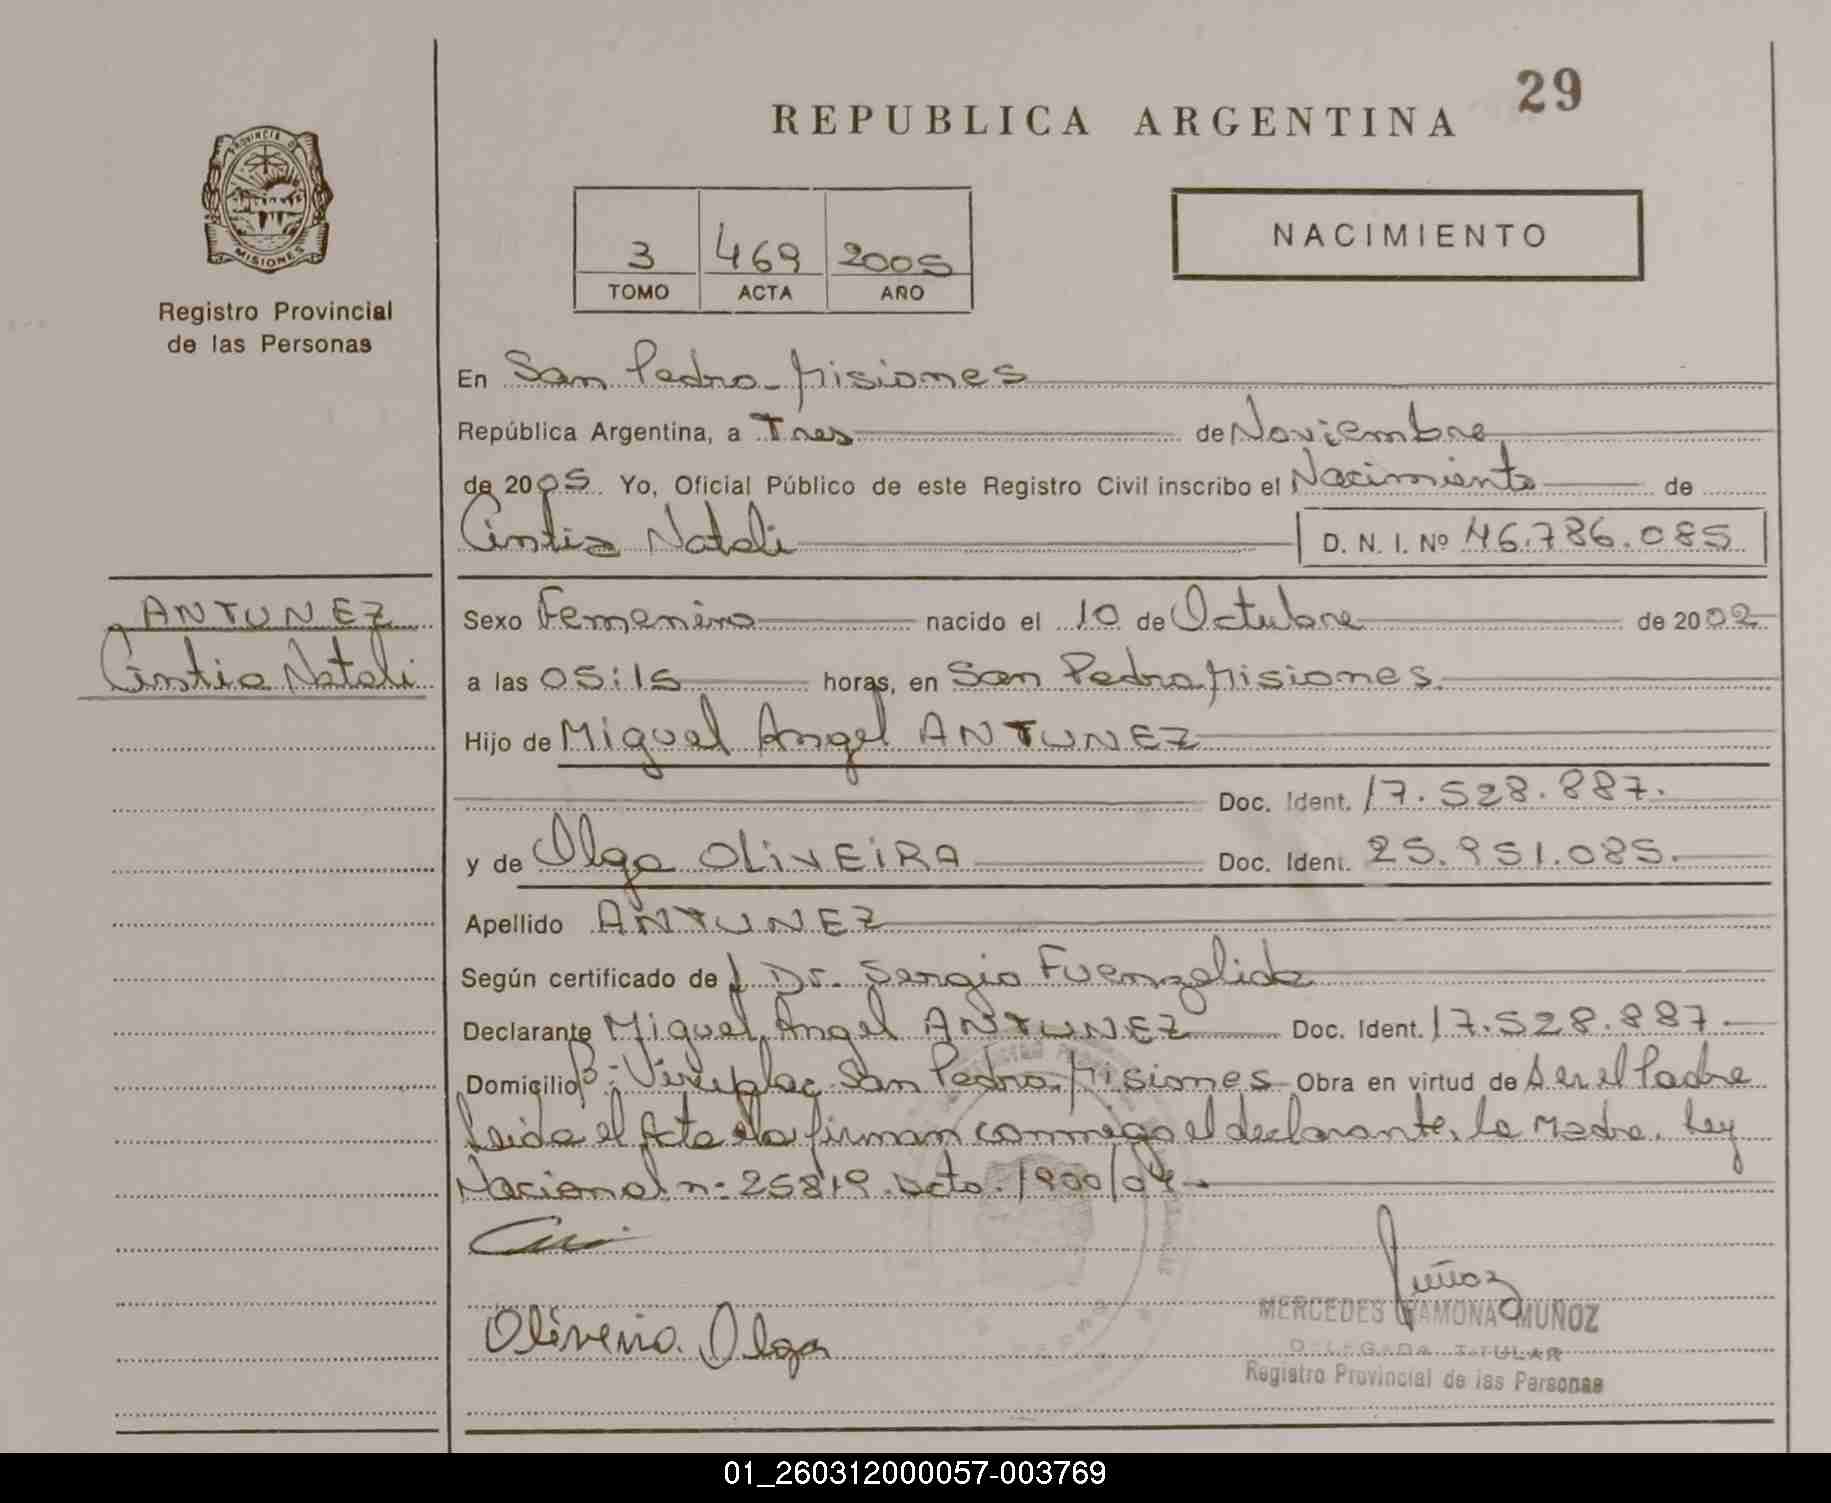 29
REPUBLICA ARGENTINA
PROVINCIA DE
MISIONES
Registro Provincial
de las Personas
3 469 2005
TOMO ACTA AÑO
NACIMIENTO
En San Pedro - Misiones
República Argentina, a Tres de Noviembre
de 2005 Yo, Oficial Público de este Registro Civil inscribo el Nacimiento de
Cintia Natali D. N. I. Nº 46.786.085
ANTUNEZ
Cintia Natali
Sexo Femenino nacido el 10 de Octubre de 2002
a las 05:15 horas, en San Pedro Misiones.
Hijo de Miguel Angel ANTUNEZ
Doc. Ident. 17.528.887.
y de Olga OLiVEiRA Doc. Ident. 25.951.085.
Apellido ANTUNEZ
Según certificado de Dr. Sergio Fuenzalida
Declarante Miguel Angel ANTUNEZ Doc. Ident. 17.528.887.
Domicilio San Pedro. Misiones Obra en virtud de ser el Padre
Leida el Acta la firman conmigo el declarante, la Madre. Ley
Nacional n: 25819. Dcto. 1900/04.
Muñoz
MERCEDES RAMONA MUÑOZ
Oliveira. Olga
DELEGADA TITULAR
Registro Provincial de las Personas
01_260312000057-003769